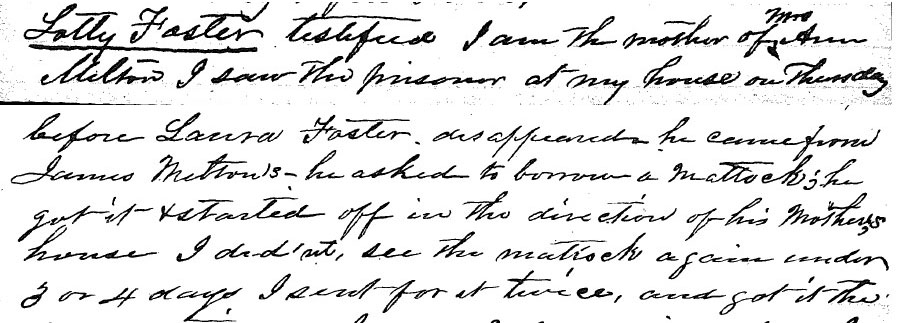 Lotty Foster testified I am the mother of Mrs Ann
Milton I saw the prisoner at my house on Thursday
before Laura Foster disappeared he came from
James Melton's - he asked to borrow a Mattock; he
got it & started off in the direction of his Mother's
house I did'nt, see the mattock again under
3 or 4 days I sent for it twice, and got it the